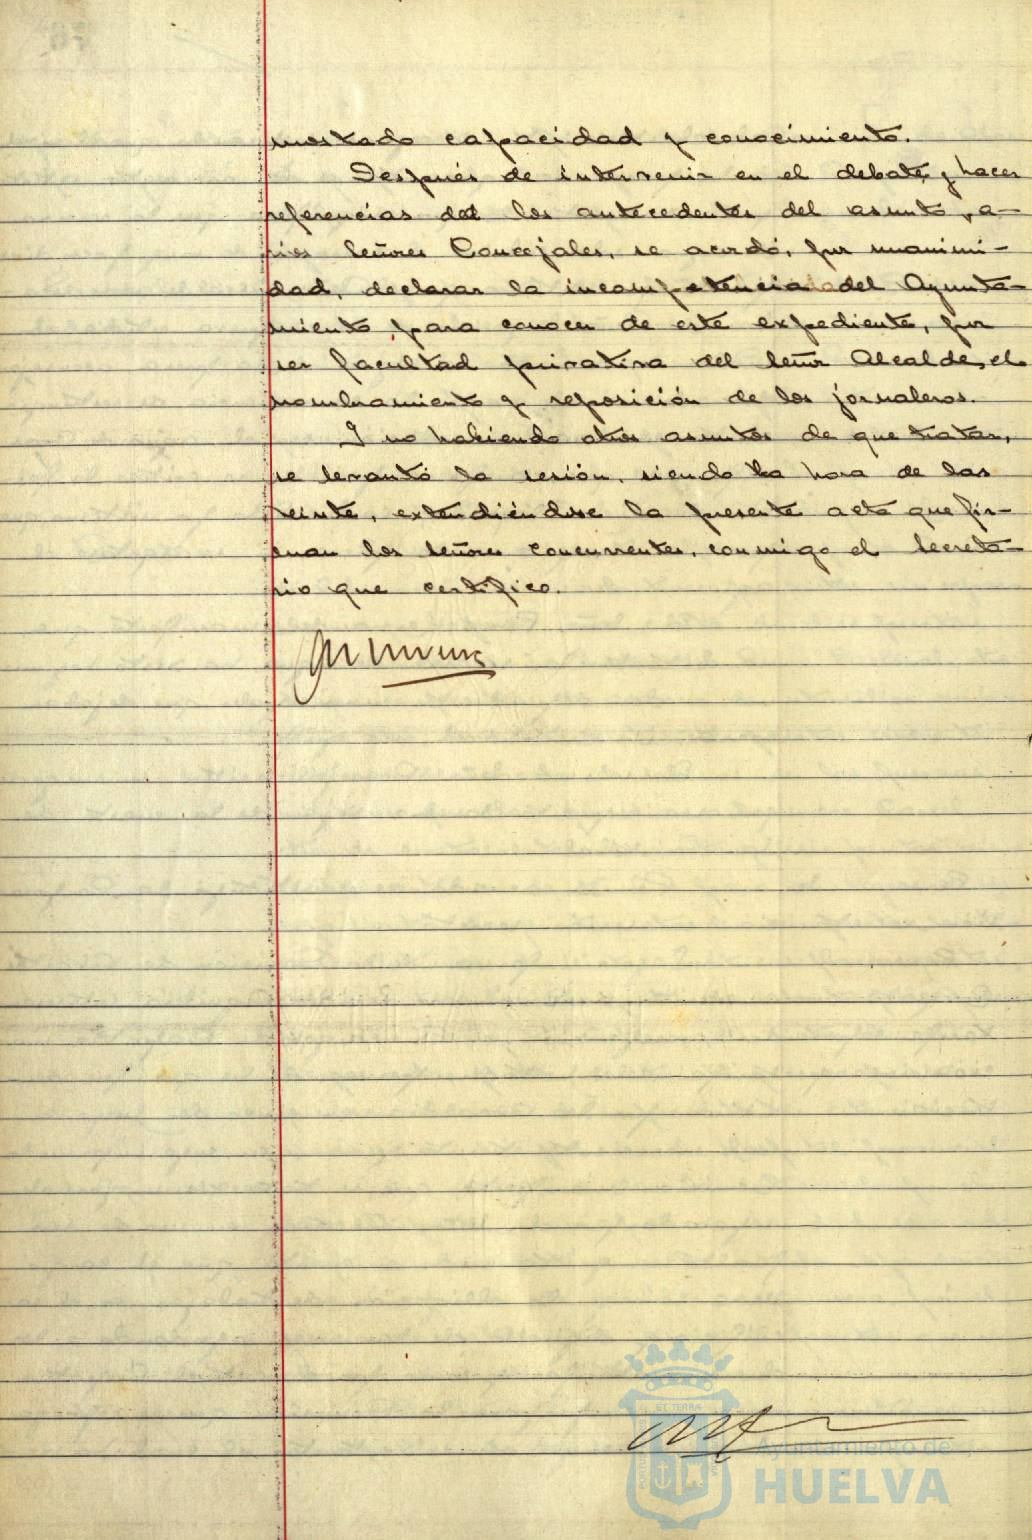 mostrado capacidad y conocimiento.
Después de intervenir en el debate, y hacer
referencias del los antecedentes del asunto, va-
rios Señores Concejales, se acordó, por unanimi-
dad, declarar la incompetencia del Ayunta-
miento para conocer de este expediente, por
ser facultad privativa del Señor Alcalde, el
nombramiento y reposición de los jornaleros.
Y no habiendo otros asuntos de que tratar,
se levantó la sesión, siendo la hora de las
veinte, extendiéndose la presente acta que fir-
man los Señores concurrentes, conmigo el Secreta-
rio que certifico.
ET TERRÆ
Ayuntamiento de
HUELVA